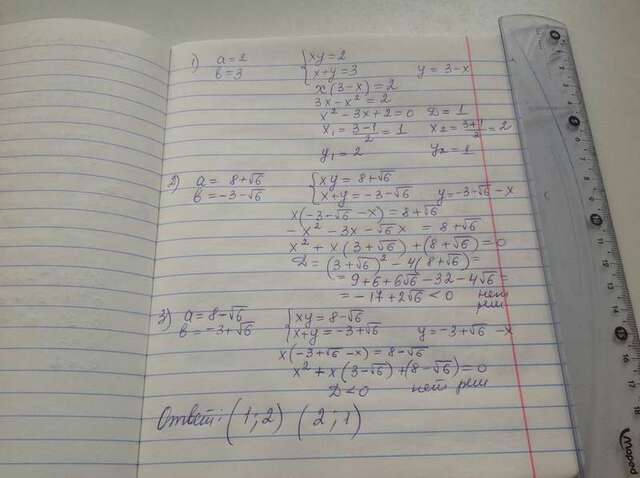 1) a=2 {xy=2
b=3 {x+y=3 y=3-x
x(3-x)=2
3x-x²=2
x²-3x+2=0 D=1
x₁=(3-1)/2=1 x₂=(3+1)/2=2
y₁=2 y₂=1
2) a=8+√6 {xy=8+√6
b=-3-√6 {x+y=-3-√6 y=-3-√6-x
x(-3-√6-x)=8+√6
-x²-3x-√6x=8+√6
x²+x(3+√6)+(8+√6)=0
D=(3+√6)²-4(8+√6)=
=9+6+6√6-32-4√6=
=-17+2√6<0 нет
реш
3) a=8-√6 {xy=8-√6
b=-3+√6 {x+y=-3+√6 y=-3+√6-x
x(-3+√6-x)=8-√6
x²+x(3-√6)+(8-√6)=0
D<0 нет реш
Ответ: (1;2) (2;1)
Maped